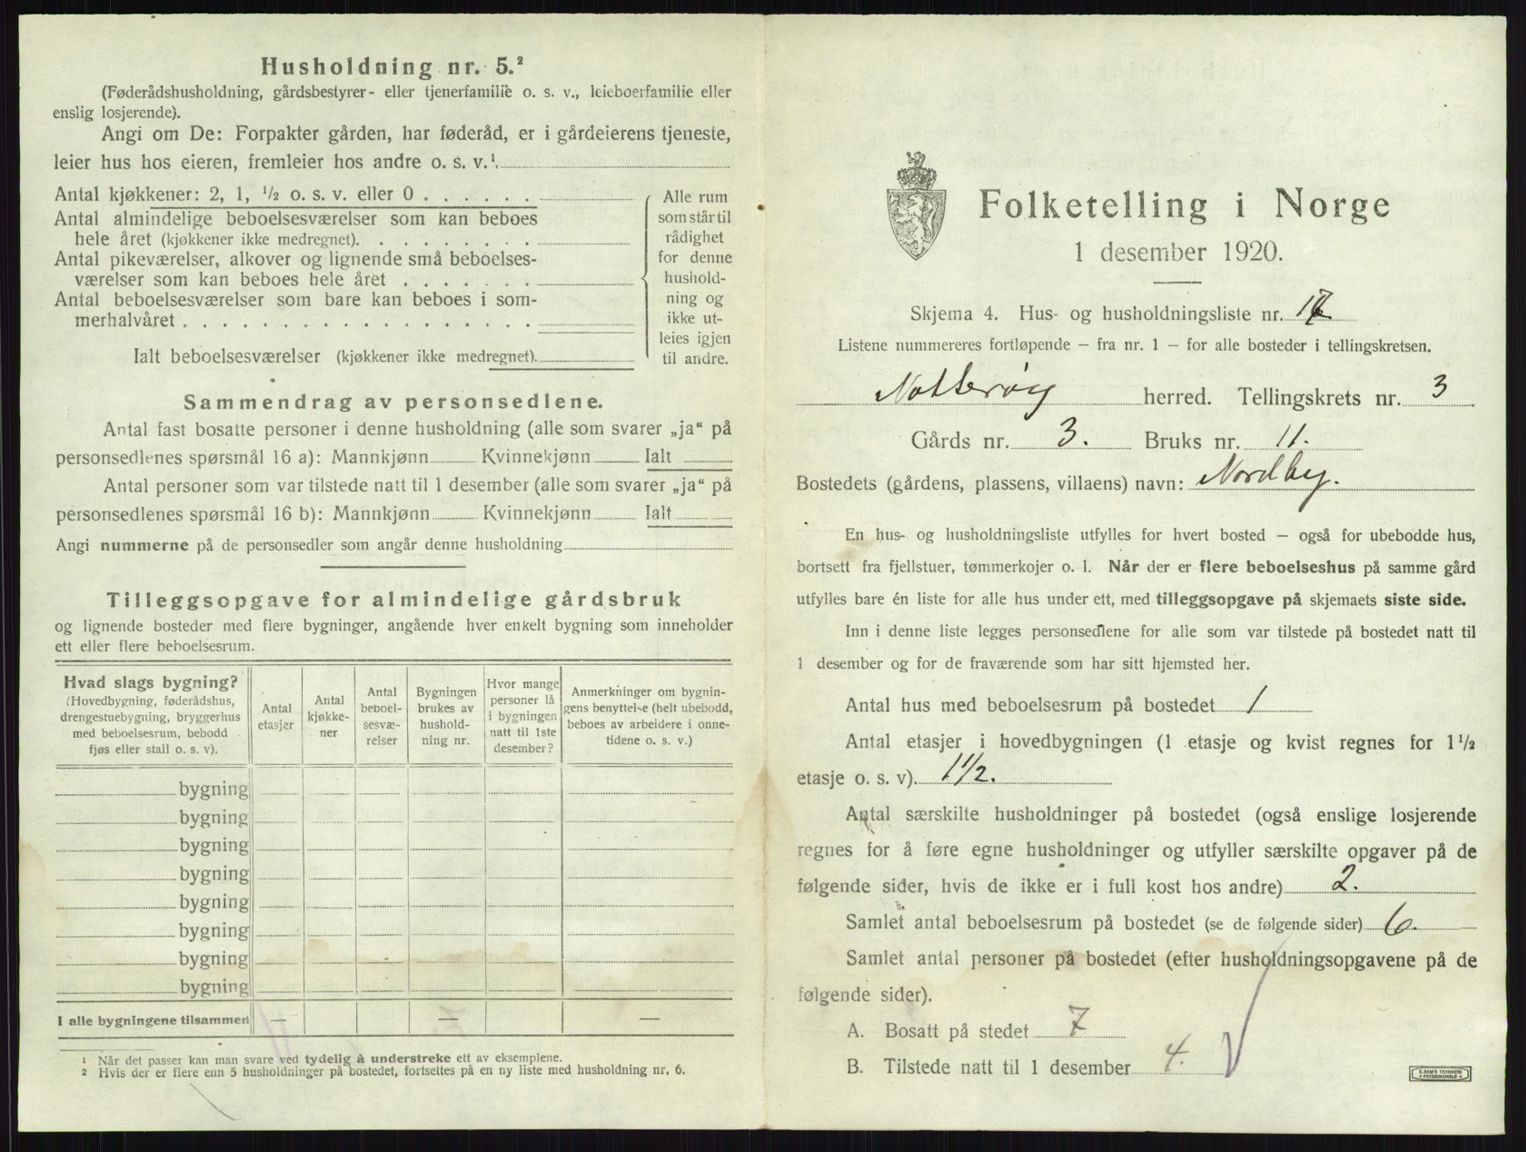 Husholdning nr. 5.²
(Føderådshusholdning, gårdsbestyrer- eller tjenerfamilie o. s. v., leieboerfamilie eller
enslig losjerende).
Angi om De: Forpakter gården, har føderåd, er i gårdeierens tjeneste,
leier hus hos eieren, fremleier hos andre o. s. v.¹
Antal kjøkkener: 2, 1, ½ o. s. v. eller 0 . . . . . .
Antal almindelige beboelsesværelser som kan beboes
hele året (kjøkkener ikke medregnet). . . . . . . . .
Antal pikeværelser, alkover og lignende små beboelses-
værelser som kan beboes hele året . . . . . . .
Antal beboelsesværelser som bare kan beboes i som-
merhalvåret . . . . . . . . . . . . . . . . . .
Ialt beboelsesværelser (kjøkkener ikke medregnet).
Alle rum
som står til
rådighet
for denne
hushold-
ning og
ikke ut-
leies igjen
til andre.
Sammendrag av personsedlene.
Antal fast bosatte personer i denne husholdning (alle som svarer „ja“ på
personsedlenes spørsmål 16 a): Mannkjønn Kvinnekjønn Ialt
Antal personer som var tilstede natt til 1 desember (alle som svarer „ja“ på
personsedlenes spørsmål 16 b): Mannkjønn Kvinnekjønn Ialt
Angi nummerne på de personsedler som angår denne husholdning
Tilleggsopgave for almindelige gårdsbruk
og lignende bosteder med flere bygninger, angående hver enkelt bygning som inneholder
ett eller flere beboelsesrum.
Hvad slags bygning?
(Hovedbygning, føderådshus,
drengestuebygning, bryggerhus
med beboelsesrum, bebodd
fjøs eller stall o. s. v).
Antal
etasjer
Antal
kjøkke-
ner
Antal
beboel-
sesvæ-
relser
Bygningen
brukes av
hushold-
ning nr.
Hvor mange
personer lå
i bygningen
natt til 1ste
desember?
Anmerkninger om bygnin-
gens benyttelse (helt ubebodd,
beboes av arbeidere i onne-
tidene o. s. v.)
bygning
bygning
bygning
bygning
bygning
bygning
bygning
bygning
I alle bygningene tilsammen — — —
¹ Når det passer kan man svare ved tydelig å understreke ett av eksemplene.
² Hvis der er flere enn 5 husholdninger på bostedet, fortsettes på en ny liste med husholdning nr. 6.
Folketelling i Norge
1 desember 1920.
Skjema 4. Hus- og husholdningsliste nr. 17
Listene nummereres fortløpende — fra nr. 1 — for alle bosteder i tellingskretsen.
Nøtterøy herred. Tellingskrets nr. 3
Gårds nr. 3. Bruks nr. 11.
Bostedets (gårdens, plassens, villaens) navn: Nordby.
En hus- og husholdningsliste utfylles for hvert bosted — også for ubebodde hus,
bortsett fra fjellstuer, tømmerkojer o. l. Når der er flere beboelseshus på samme gård
utfylles bare én liste for alle hus under ett, med tilleggsopgave på skjemaets siste side.
Inn i denne liste legges personsedlene for alle som var tilstede på bostedet natt til
1 desember og for de fraværende som har sitt hjemsted her.
Antal hus med beboelsesrum på bostedet 1
Antal etasjer i hovedbygningen (1 etasje og kvist regnes for 1½
etasje o. s. v). 1½.
Antal særskilte husholdninger på bostedet (også enslige losjerende
regnes for å føre egne husholdninger og utfyller særskilte opgaver på de
følgende sider, hvis de ikke er i full kost hos andre) 2.
Samlet antal beboelsesrum på bostedet (se de følgende sider) 6.
Samlet antal personer på bostedet (efter husholdningsopgavene på de
følgende sider).
A. Bosatt på stedet 7
B. Tilstede natt til 1 desember 4.